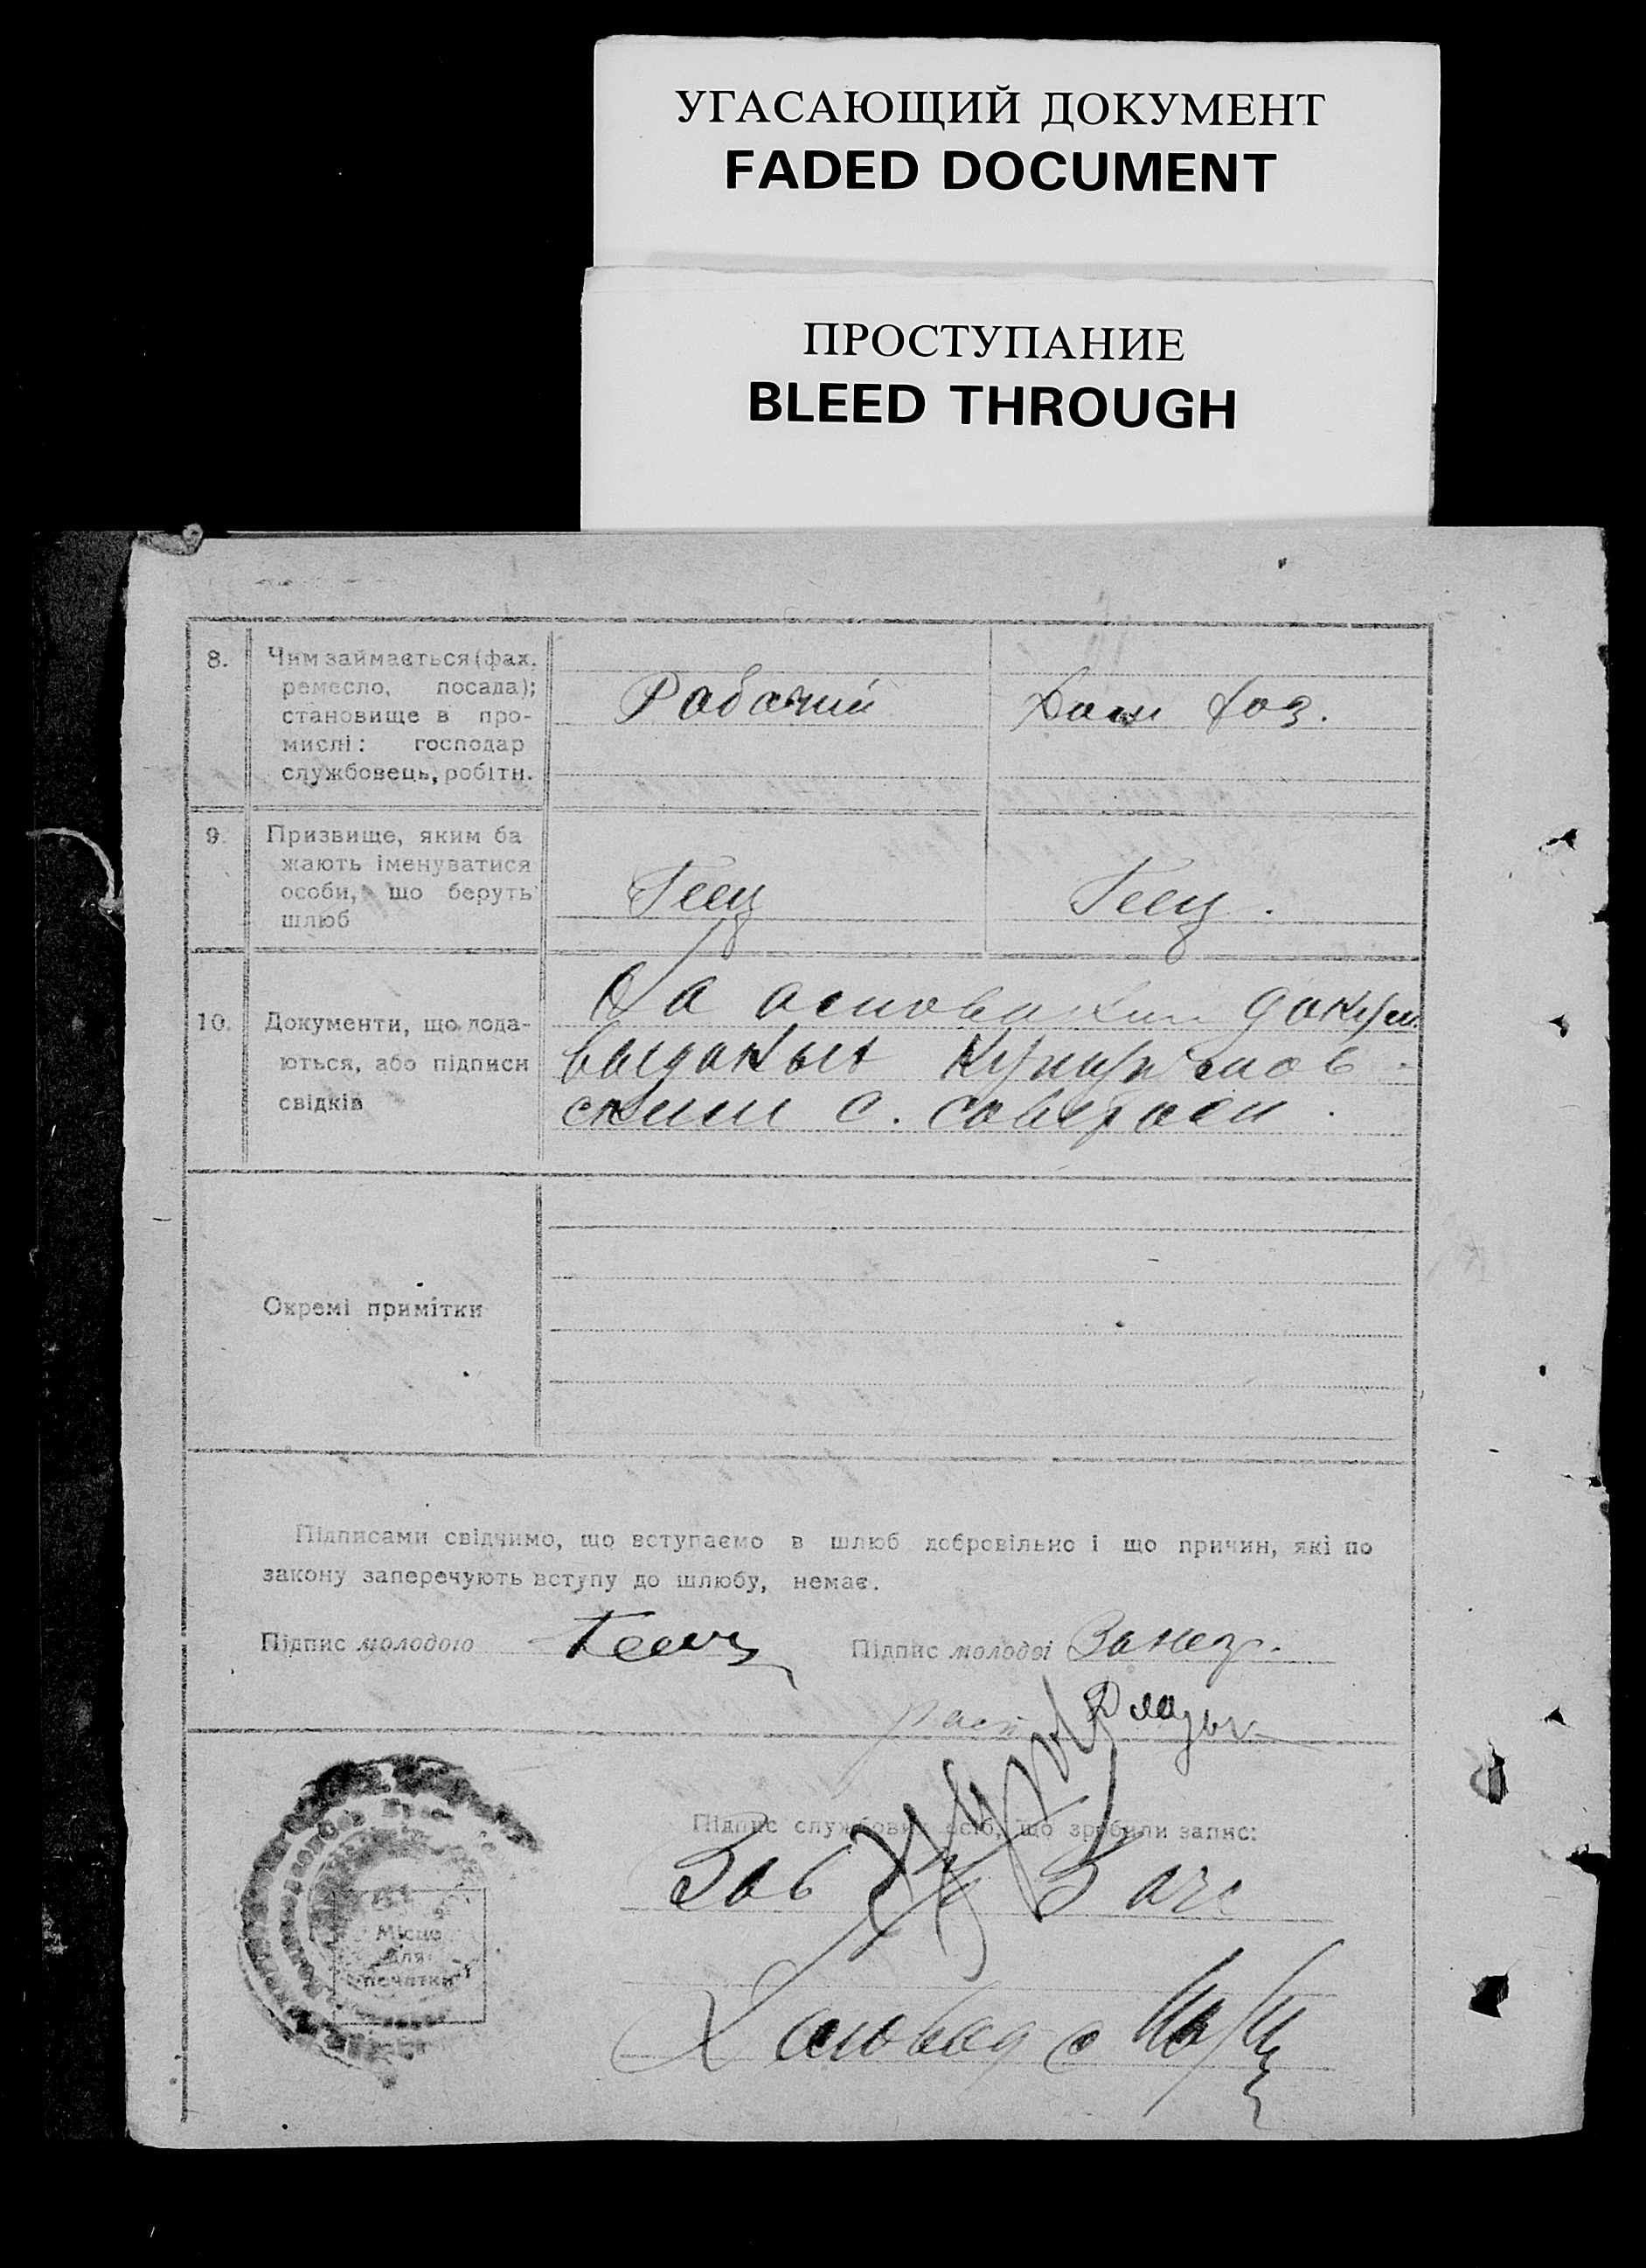 УГАСАЮЩИЙ ДОКУМЕНТ
FADED DOCUMENT
ПРОСТУПАНИЕ
BLEED THROUGH
8. Чим займається (фах,
ремесло, посада);
становище в про-
мислі: господар
службовець, робітн.
Рабочий
Дом хоз.
9. Призвище, яким ба
жають іменуватися
особи, що беруть
шлюб
Геец
Геец.
10. Документи, що дода-
ються, або підписи
свідків
На основании докум.
выданых
ским с. советом.
Окремі примітки
Підписами свідчимо, що вступаємо в шлюб добровільно і що причин, які по
закону заперечують вступу до шлюбу, немає.
Підпис молодого Геец Підпис молодої
Підпис службових осіб, що зробили запис:
Зав Загс
Місце
для
печатки